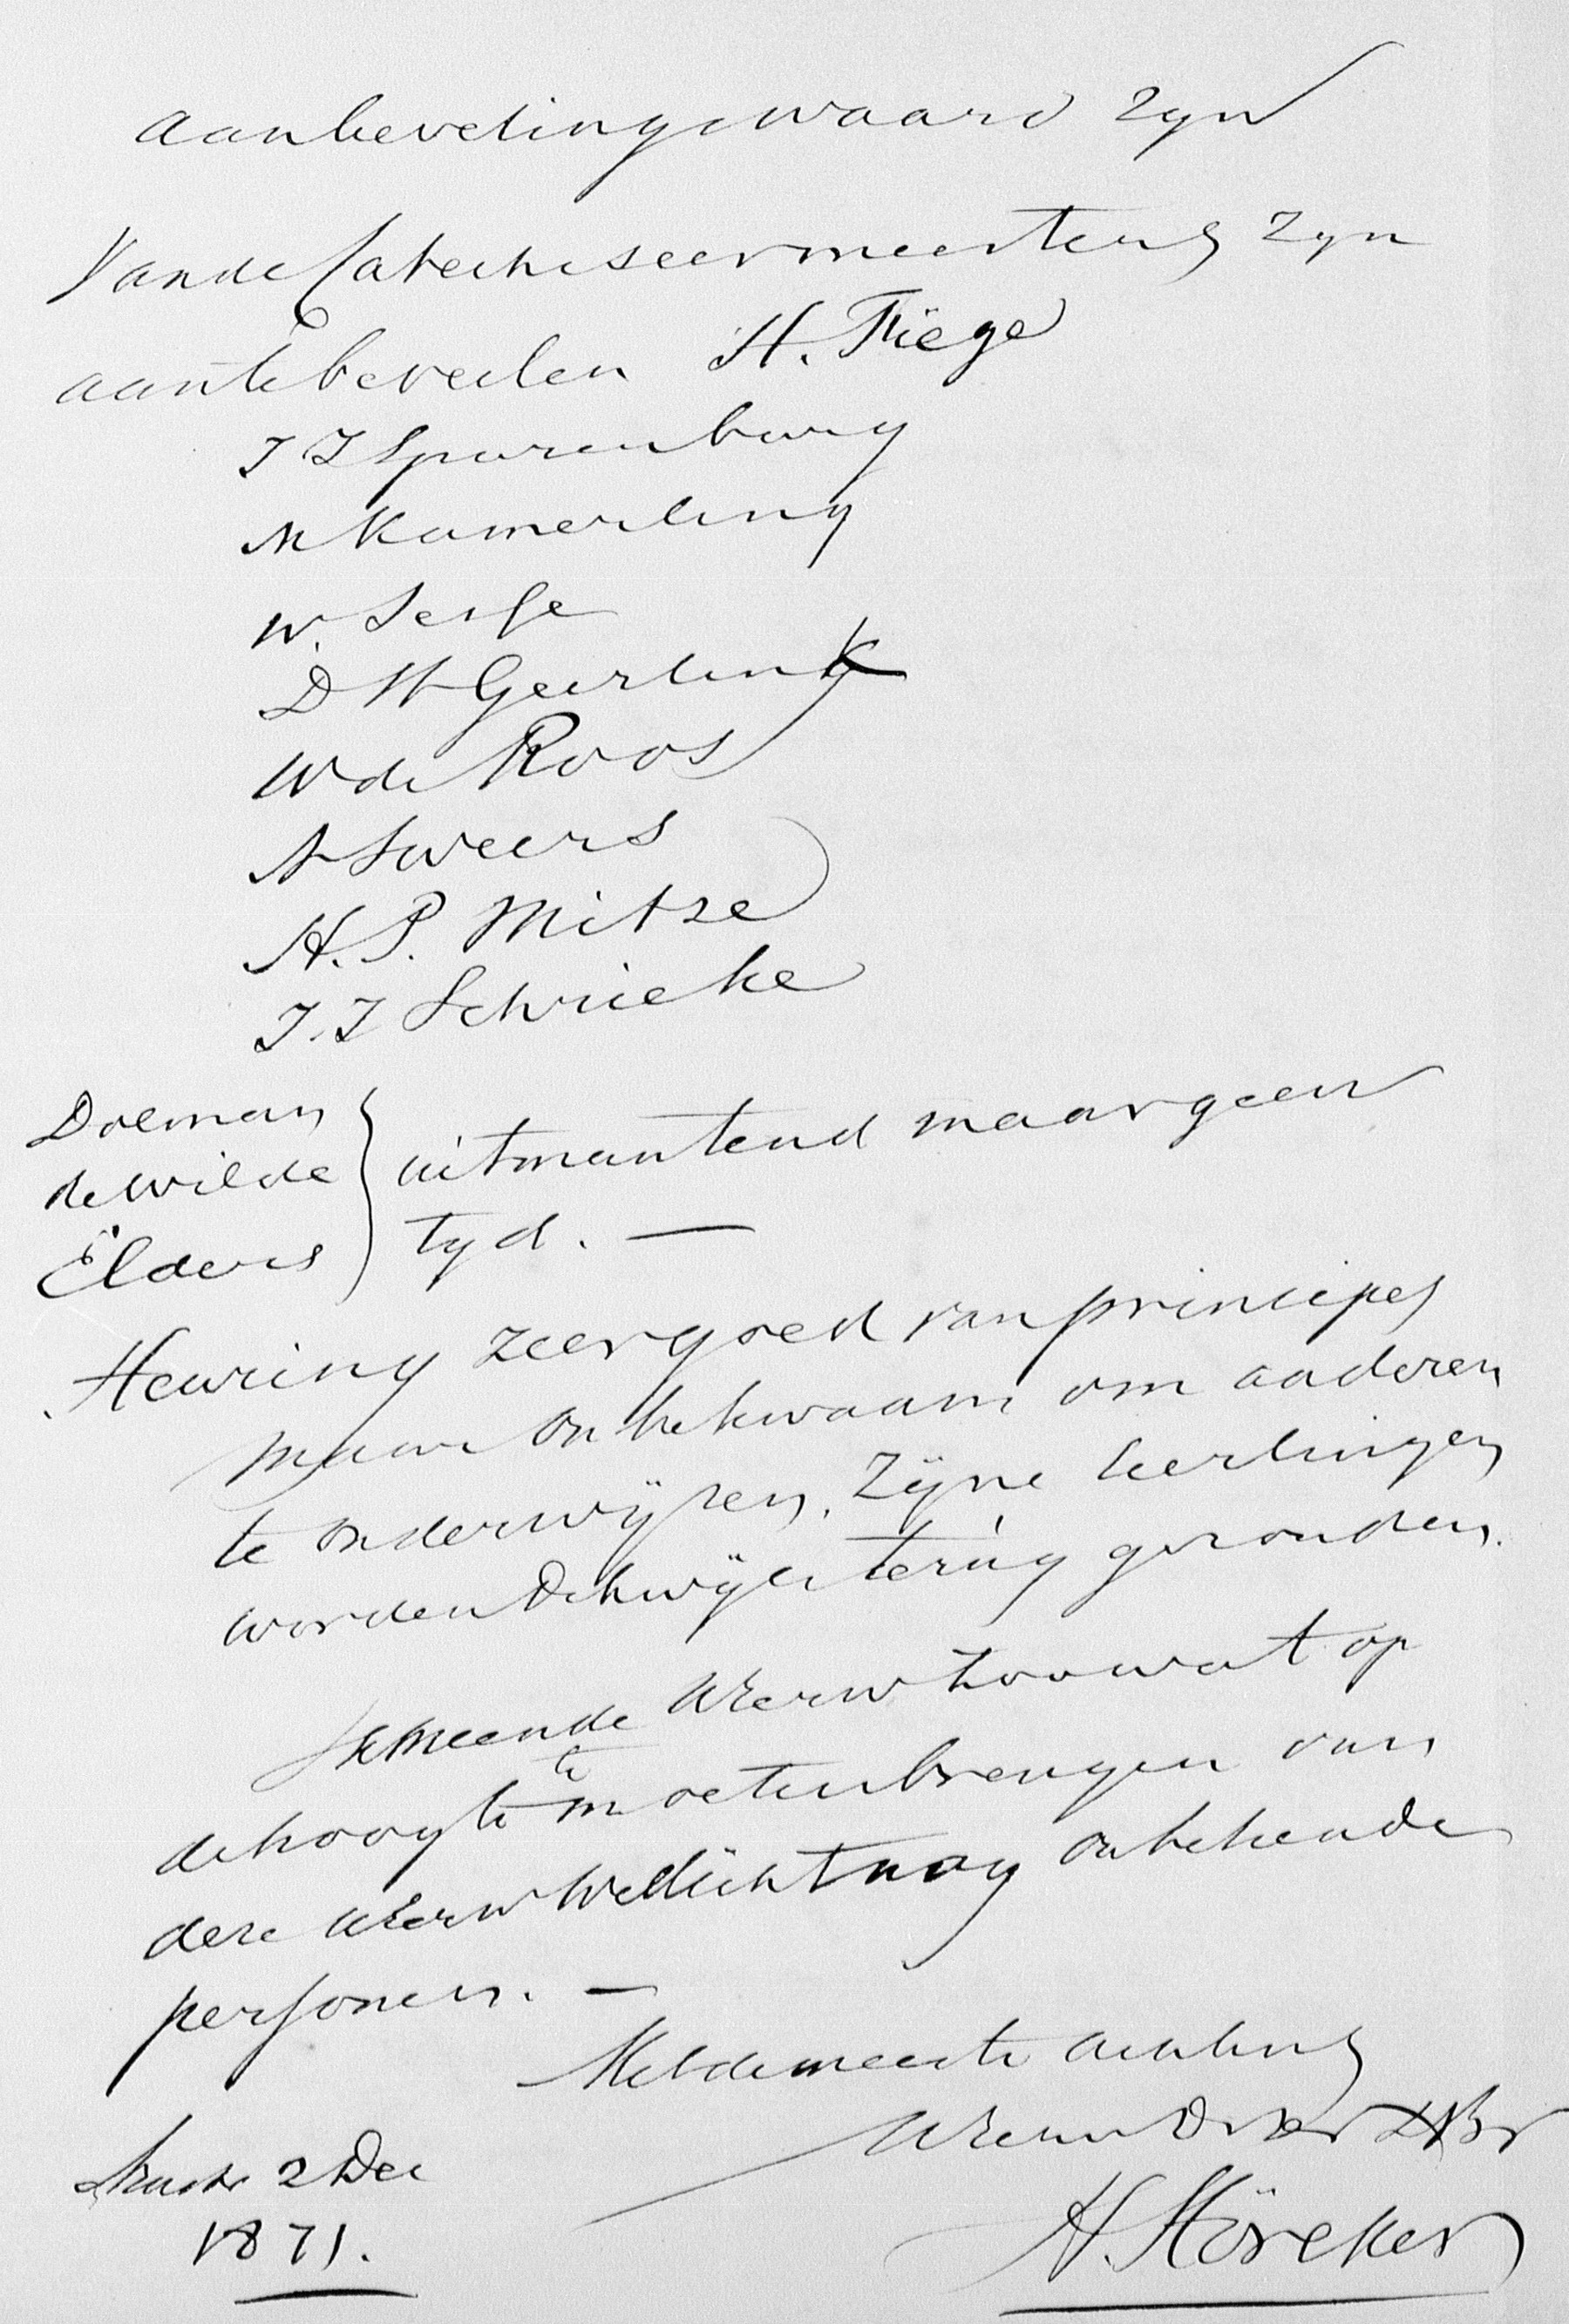 aanbevelingswaard zyn
Van de Catechiseermeesters zyn
aan te beveelen H. Fiege
J J Spurenburg
M Kamerling
W. Serfe
D H Geerlink
W de Roos
A Sweers
H. P. Mitze
J. J Schrieke
Doeman
de Wilde
Elders
uitmuntend maar geen
tyd. —
Heuring zeer goed van principes
maar onbekwaam om anderen
te onderwyzen. Zyne leerlingen
worden dikwyls terug gezonden.
Ik meende UEerw zoowat op
de hoogte te moeten brengen van
deze UEerw Wellicht nog onbekende
personen. —
Met de meeste achting
UEerw Dw Dr & Br
2 Dec
1871.
H. Höveker